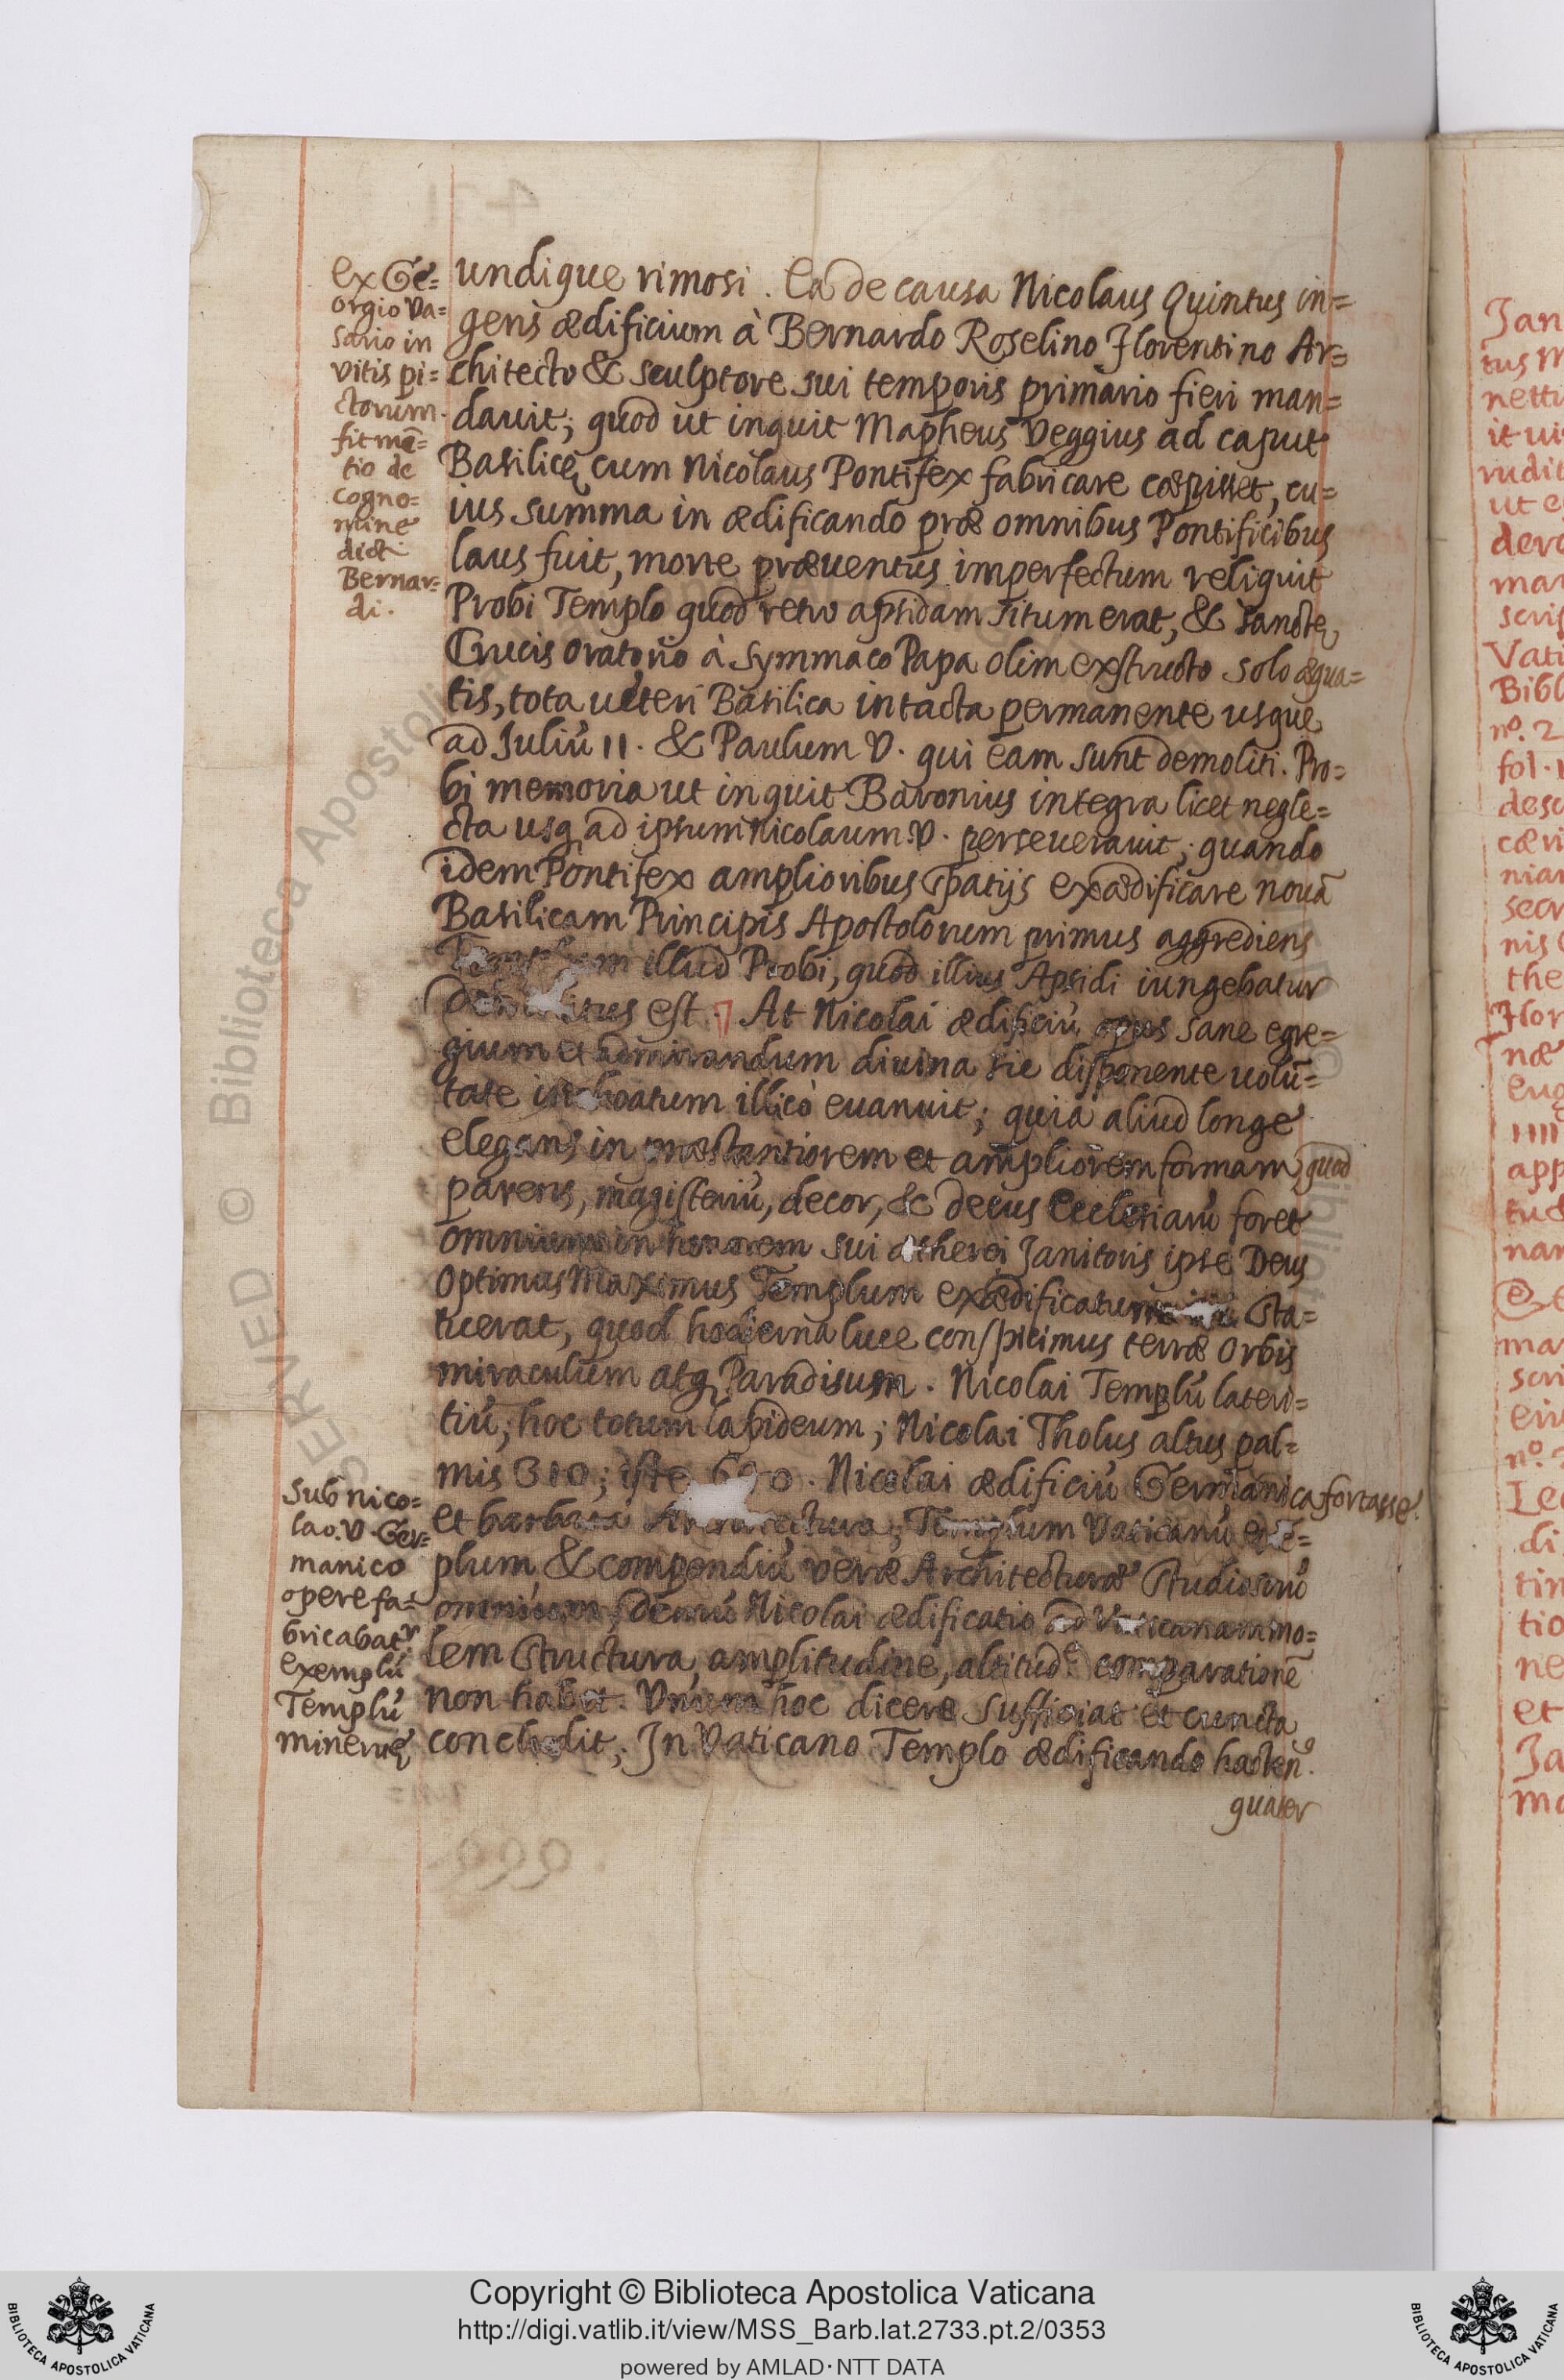 undique rimosi. Ea de causa Nicolaus Quintus in=
gens ædificium à Bernardo Roselino Florentino Ar=
chitecto & sculptore sui temporis primario fieri man=
dauit; quod ut inquit Mapheus Veggius ad caput
Basilicę cum Nicolaus Pontifex fabricare cœpisset, cu=
ius summa in ædificando præ omnibus Pontificibus
laus fuit, morte præuentus imperfectum reliquit
Probi Templo quod retro apsidam situm erat, & sanctę
Crucis oratorio à Symmaco Papa olim exstructo solo æqua=
tis, tota ueteri Basilica intacta permanente usque
ad Juliũ II. & Paulum V. qui eam sunt demoliti. Pro=
bi memoria ut inquit Baronius integra licet negle=
cta usq ad ipsum Nicolaum V. perseuerauit, quando
idem Pontifex amplioribus spatijs exædificare nouã
Basilicam Principis Apostolorum primus aggrediens
illud Probi, quod illius Apsidi iungebatur
est. At Nicolai ædificiũ opus sane egre=
gium et admirandum diuina sic disponente uolũ=
tate inchoatum illicò euanuit; quia aliud longe
elegans in præstantiorem et ampliorem formam quod
parens, magisteriũ, decor, & decus Ecclesiarũ foret
omnium in honorem sui ætherei Janitoris ipse Deus
Optimus Maximus Templum exædificatum sta=
tuerat, quod hodierna luce conspicimus terræ Orbis
miraculum atq Paradisum. Nicolai Templũ lateri=
tiũ, hoc totum lapideum; Nicolai Tholus altus pal=
mis 310; iste. Nicolai ædificiũ Germanica fortasse
et barbara Architectura; Templum Vaticanũ exẽ=
plum, & compendiũ veræ Architecturæ Studiosorũ
omnium, demũ Nicolai ædificatio ad Vaticanam mo=
lem structura, amplitudine, altitudẽ comparationẽ
non habet. Vnum hoc dicere sufficiat et cuncta
concludit, In Vaticano Templo ædificando hacten9.
quater
ex Ge=
orgio Va=
sario in
vitis pi=
ctorum.
fit mẽ=
tio de
cogno=
mine
dicti
Bernar=
di.
Sub nico=
lao. V. Ger=
manico
opere fa=
bricabatr
exemplũ
Templũ
mineruę
Jan
tus M
nettu
it ui
rudit
ut e
dero
mar
scrip
Vati
Bibl
nº. 2
fol. 1
desc
cæri
niar
secr
nis
the
Flor
næ
eug
IIII
app
tud
nar
mar
scri
eiu
nº.
Leo
di
tin
tio
ne
et
Ja
mo
© Biblioteca Apostolica
Copyright © Biblioteca Apostolica Vaticana
http://digi.vatlib.it/view/MSS_Barb.lat.2733.pt.2/0353
powered by AMLAD·NTT DATA
BIBLIOTECA APOSTOLICA VATICANA
BIBLIOTECA APOSTOLICA VATICANA